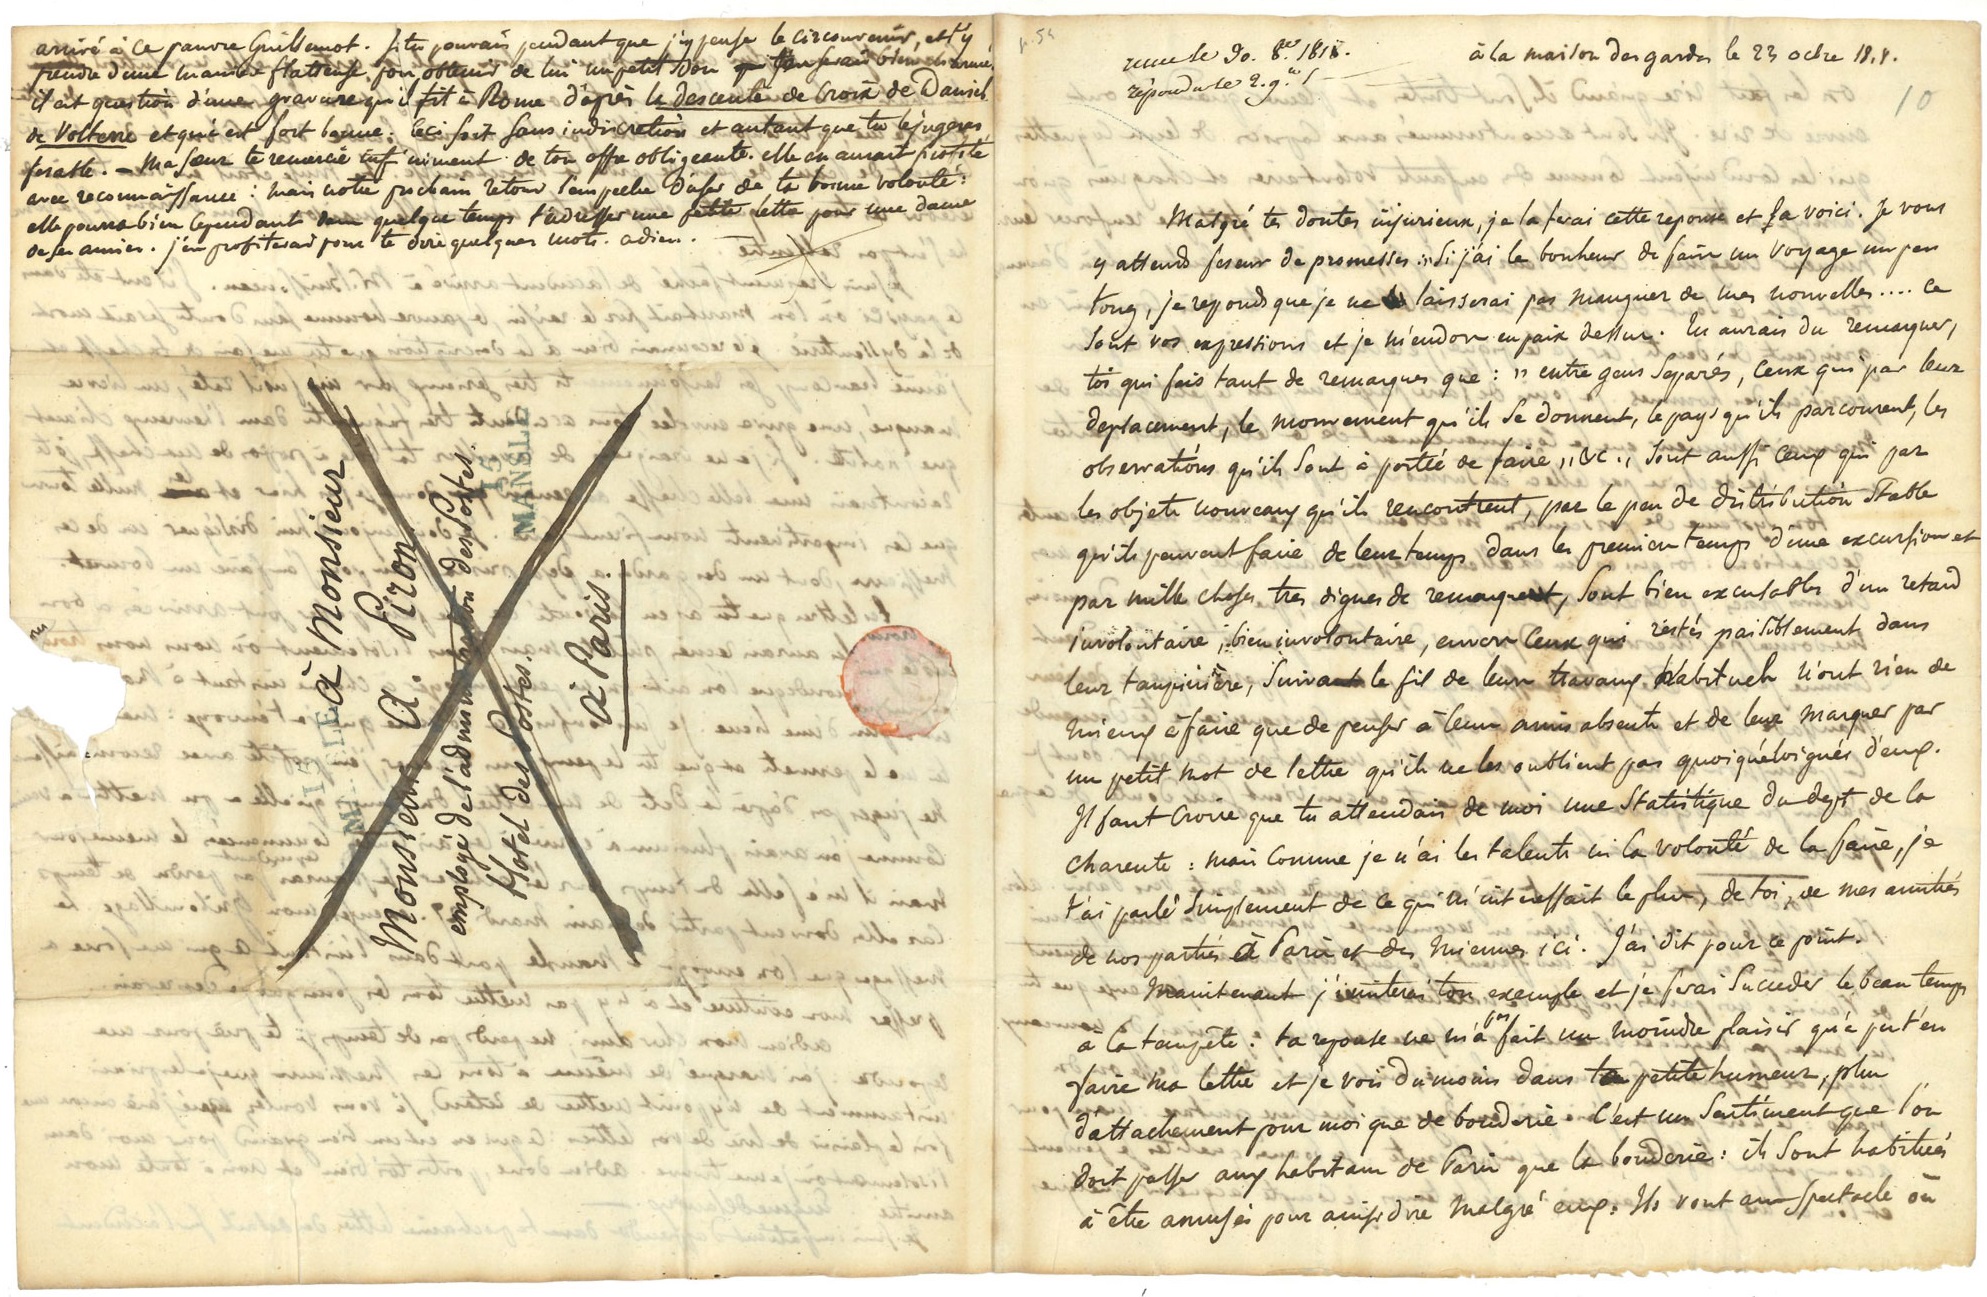 arrivé à ce pauvre Guillemot. Si tu pouvais pendant que j'y pense le circonvenir, et t'y
prendre d'une maniere flatteuse pour obtenir de lui un petit don j'en serais bien charmé.
il est question d'une gravure qu'il fit à Rome d'après la descente de Croix de Daniel
de Volterre et qui est fort bonne. Ceci soit sans indiscretion et autant que tu le jugeras
fesable. – Ma sœur te remercie infiniment de ton offre obligeante. elle en aurait profité
avec reconnaissance : mais notre prochain retour l'empeche d'user de ta bonne volonté :
elle pourra bien cependant dans quelque temps t'adresser une petite lettre pour une dame
de ses amies. j'en profiterai pour te dire quelques mots. adieu.
à Monsieur
Monsieur A. Piron
employé de l'administration des Postes.
Hotel des Postes.
à Paris.
15
MANSLE
15
MANSLE
p. 54
reçue le 30. 8bre 1818.
répondu le 2. 9bre
à la maison des gardes le 23 octre 18.8.
10
Malgré tes doutes injurieux, je la ferai cette reponse et la voici. Je vous
y attends feseur de promesses : " Si j'ai le bonheur de faire un voyage un peu
long, je reponds que je ne laisserai pas manquer de mes nouvelles .... ce
sont vos expressions et je m'endors en paix dessus. Tu aurais du remarquer,
toi qui fais tant de remarques que : " entre gens separés, ceux qui par leur
deplacement, le mouvement qu'ils se donnent, le pays qu'ils parcourent, les
observations qu'ils sont à portée de faire " &c " sont aussi ceux qui par
les objets nouveaux qu'ils rencontrent, par le peu de distribution stable
qu'ils peuvent faire de leur temps dans les premiers temps d'une excursion et
par mille choses tres dignes de remarques, sont bien excusables d'un retard
involontaire, bien involontaire, envers ceux qui restés paisiblement dans
leur taupiniere, suivant le fil de leurs travaux habituels n'ont rien de
mieux à faire que de penser à leurs amis absents et de leur marquer par
un petit mot de lettre qu'ils ne les oublient pas quoiqu'éloignés d'eux.
Il faut croire que tu attendais de moi une Statistique du dept de la
charente : mais comme je n'ai les talents ni la volonté de la faire, je
t'ai parlé simplement de ce qui m'interessait le plus, de toi, de mes amitiés
de nos parties à Paris et des miennes ici. J'ai dit pour ce point.
Maintenant j'imiterai ton exemple et je ferai succeder le beau temps
à la tempête : ta reponse ne m'a pas fait un moindre plaisir qu'a pu t'en
faire ma lettre et je vois du moins dans ta petite humeur, plus
d'attachement pour moi que de bouderie. C'est un sentiment que l'on
doit passer aux habitans de Paris que la bouderie : ils sont habitués
à être amusés pour ainsi dire malgré eux. Ils vont au spectacle où